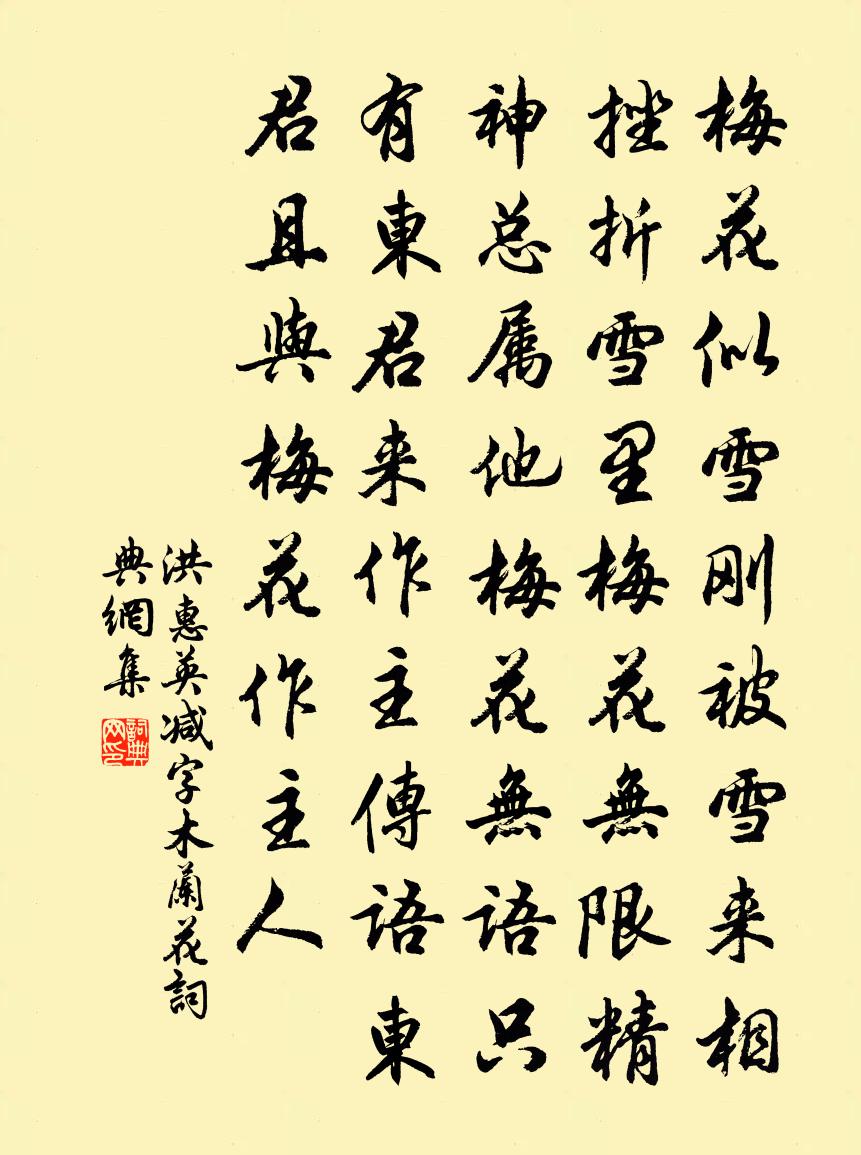 梅花似雪刚被雪来相
挫折雪里梅花無限精
神总属他梅花無语只
有東君来作主傳语東
君且與梅花作主人
洪惠英减字木蘭花詞
典網集
詞典網印